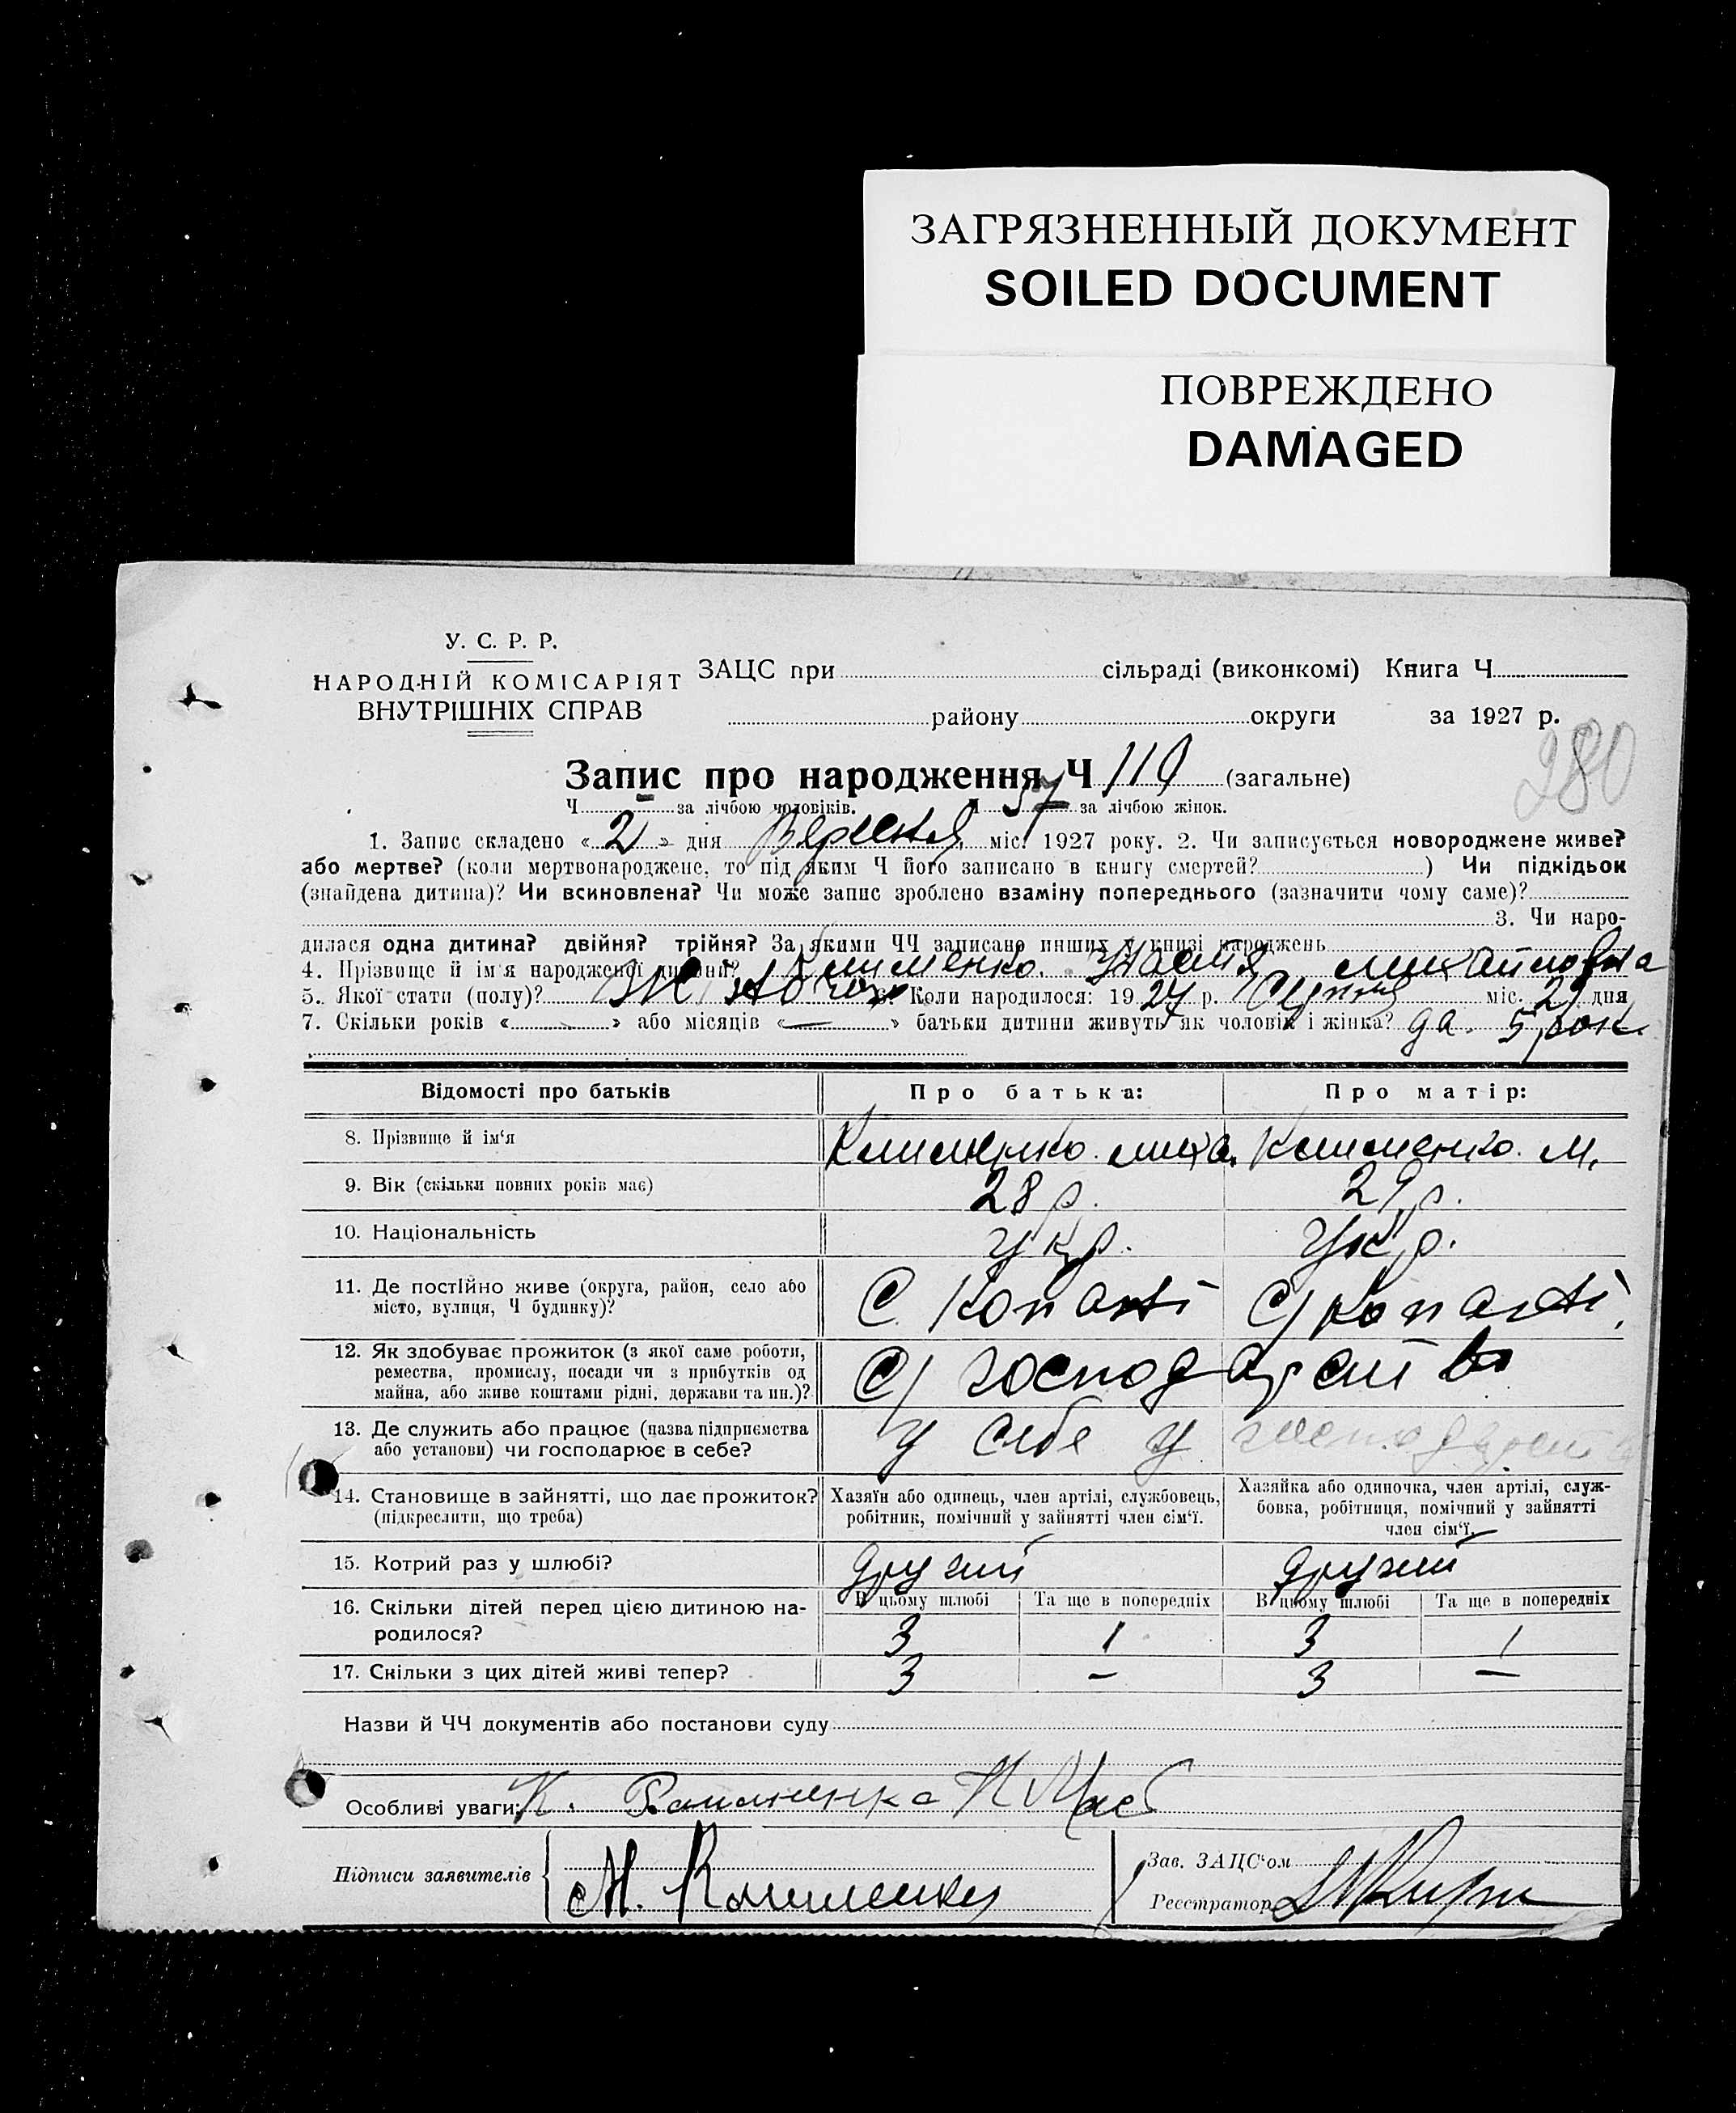 ЗАГРЯЗНЕННЫЙ ДОКУМЕНТ
SOILED DOCUMENT
ПОВРЕЖДЕНО
DAMAGED
У. С. Р. Р.
НАРОДНІЙ КОМІСАРІЯТ
ВНУТРІШНІХ СПРАВ
ЗАЦС при сільраді (виконкомі) Книга Ч.
району округи за 1927 р.
280
Запис про народження Ч 119 (загальне)
Ч. — за лічбою чоловіків. Ч 57 за лічбою жінок.
1. Запис складено « 2 » дня Вересня міс. 1927 року. 2. Чи записується новороджене живе?
або мертве? (коли мертвонароджене, то під яким Ч його записано в книгу смертей? ) Чи підкідьок
(знайдена дитина)? Чи всиновлена? Чи може запис зроблено взаміну попереднього (зазначити чому саме)?
3. Чи наро-
дилася одна дитина? двійня? трійня? За якими ЧЧ записано инших у книзі народжень
4. Прізвище й ім'я народженої дитини? Клименко Михайловна
5. Якої статі (полу)? Жіночої 6. Коли народилося: 19 27 р. Серпня міс. 29 дня
7. Скільки років « » або місяців « — » батьки дитини живуть як чоловік і жінка? да. 5 рок.
Відомості про батьків Про батька: Про матір:
8. Прізвище й ім'я Клименко Миха. Клименко. М.
9. Вік (скільки повних років має) 28 р. 29 р.
10. Національність укр. укр.
11. Де постійно живе (округа, район, село або
місто, вулиця, Ч будинку)? С Копані С/ Копані
12. Як здобуває прожиток (з якої саме роботи,
ремества, промислу, посади чи з прибутків од
майна, або живе коштами рідні, держави та ин.)? С/ господарств
13. Де служить або працює (назва підприємства
або установи) чи господарює в себе? у себе у господарстві
14. Становище в зайнятті, що дає прожиток?
(підкреслити, що треба)
Хазяїн або одинець, член артілі, службовець,
робітник, помічний у зайнятті член сім'ї.
Хазяйка або одиночка, член артілі, служ-
бовка, робітниця, помічний у зайнятті
член сім'ї.
15. Котрий раз у шлюбі? другий другий
16. Скільки дітей перед цією дитиною на-
родилося?
В цьому шлюбі Та ще в попередніх В цьому шлюбі Та ще в попередніх
3 1 3 1
17. Скільки з цих дітей живі тепер? 3 — 3 —
Назви й ЧЧ документів або постанови суду
Особливі уваги: К.
Підписи заявителів М. Клименко
Зав. ЗАЦС'ом
Реєстратор